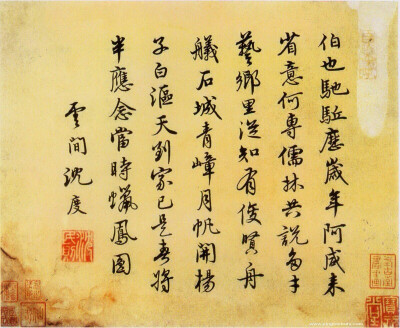 伯也馳駈塵歲年阿咸来
省意何専儒林共說多才
藝鄉里從知有俊賢舟
艤石城青嶂月帆開楊
子白漚天到家已是春將
半應念當時蠟鳳圓
雲間沈度